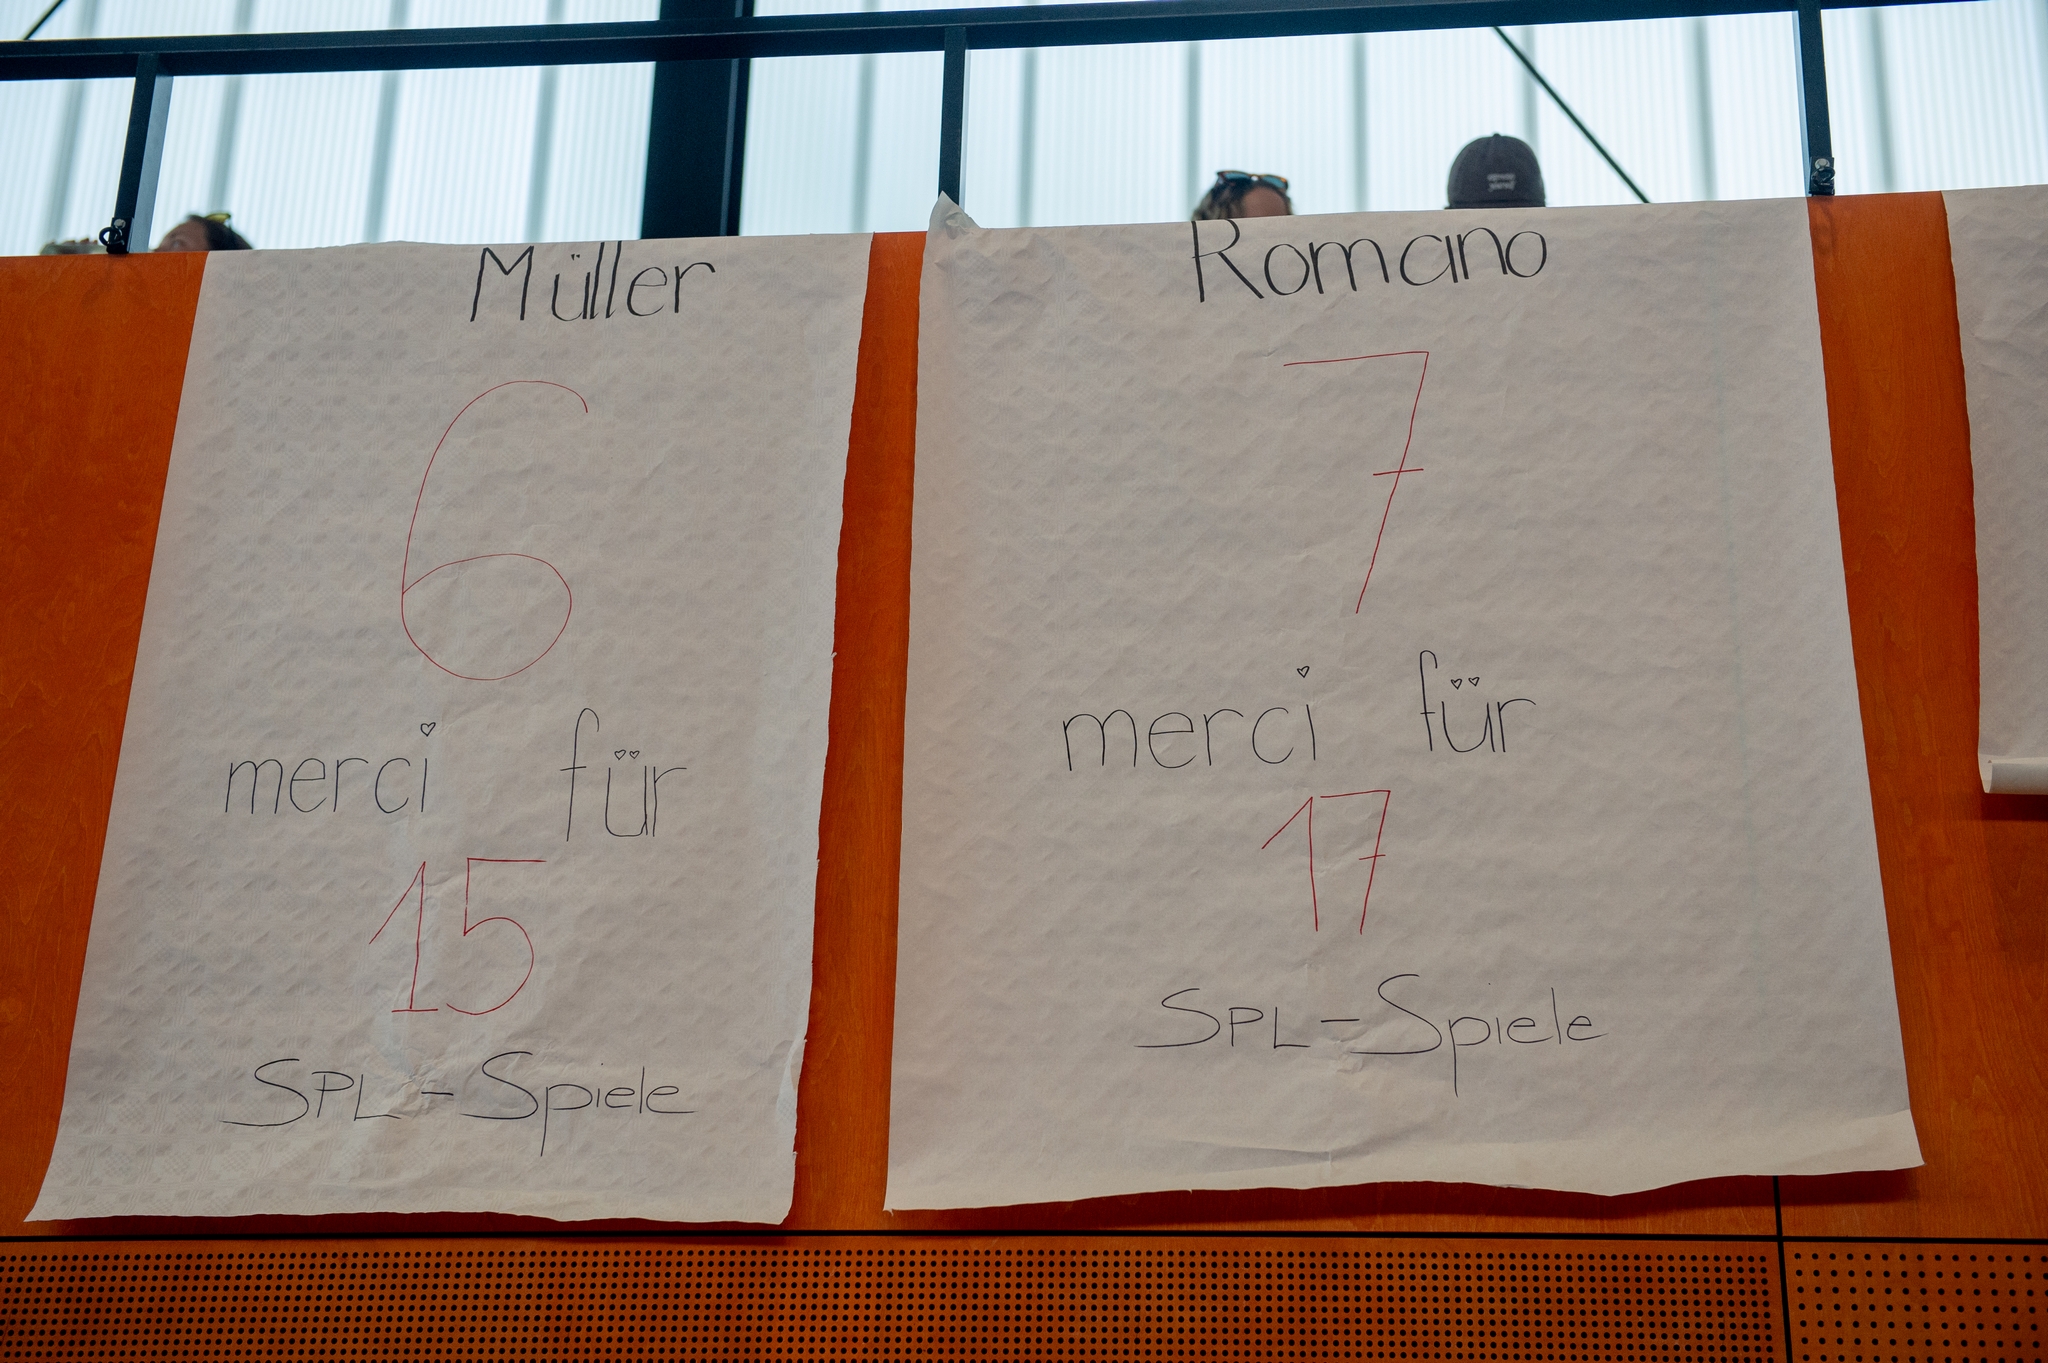 Müller
6
merci für
15
SPL-Spiele
Romano
7
merci für
17
SPL-Spiele